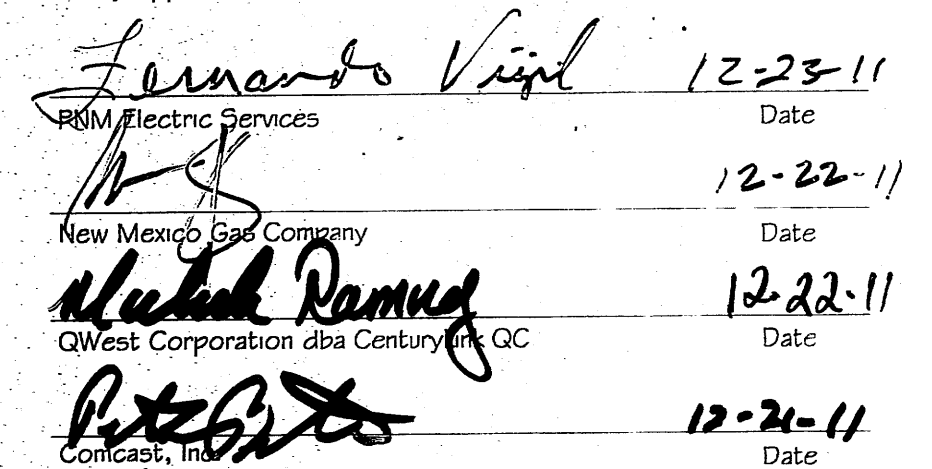 Fernando Vigil 12-23-11
PNM Electric Services Date
12-22-11
New Mexico Gas Company Date
Ramirez 12-22-11
QWest Corporation dba CenturyLink QC Date
12-21-11
Comcast, Inc. Date